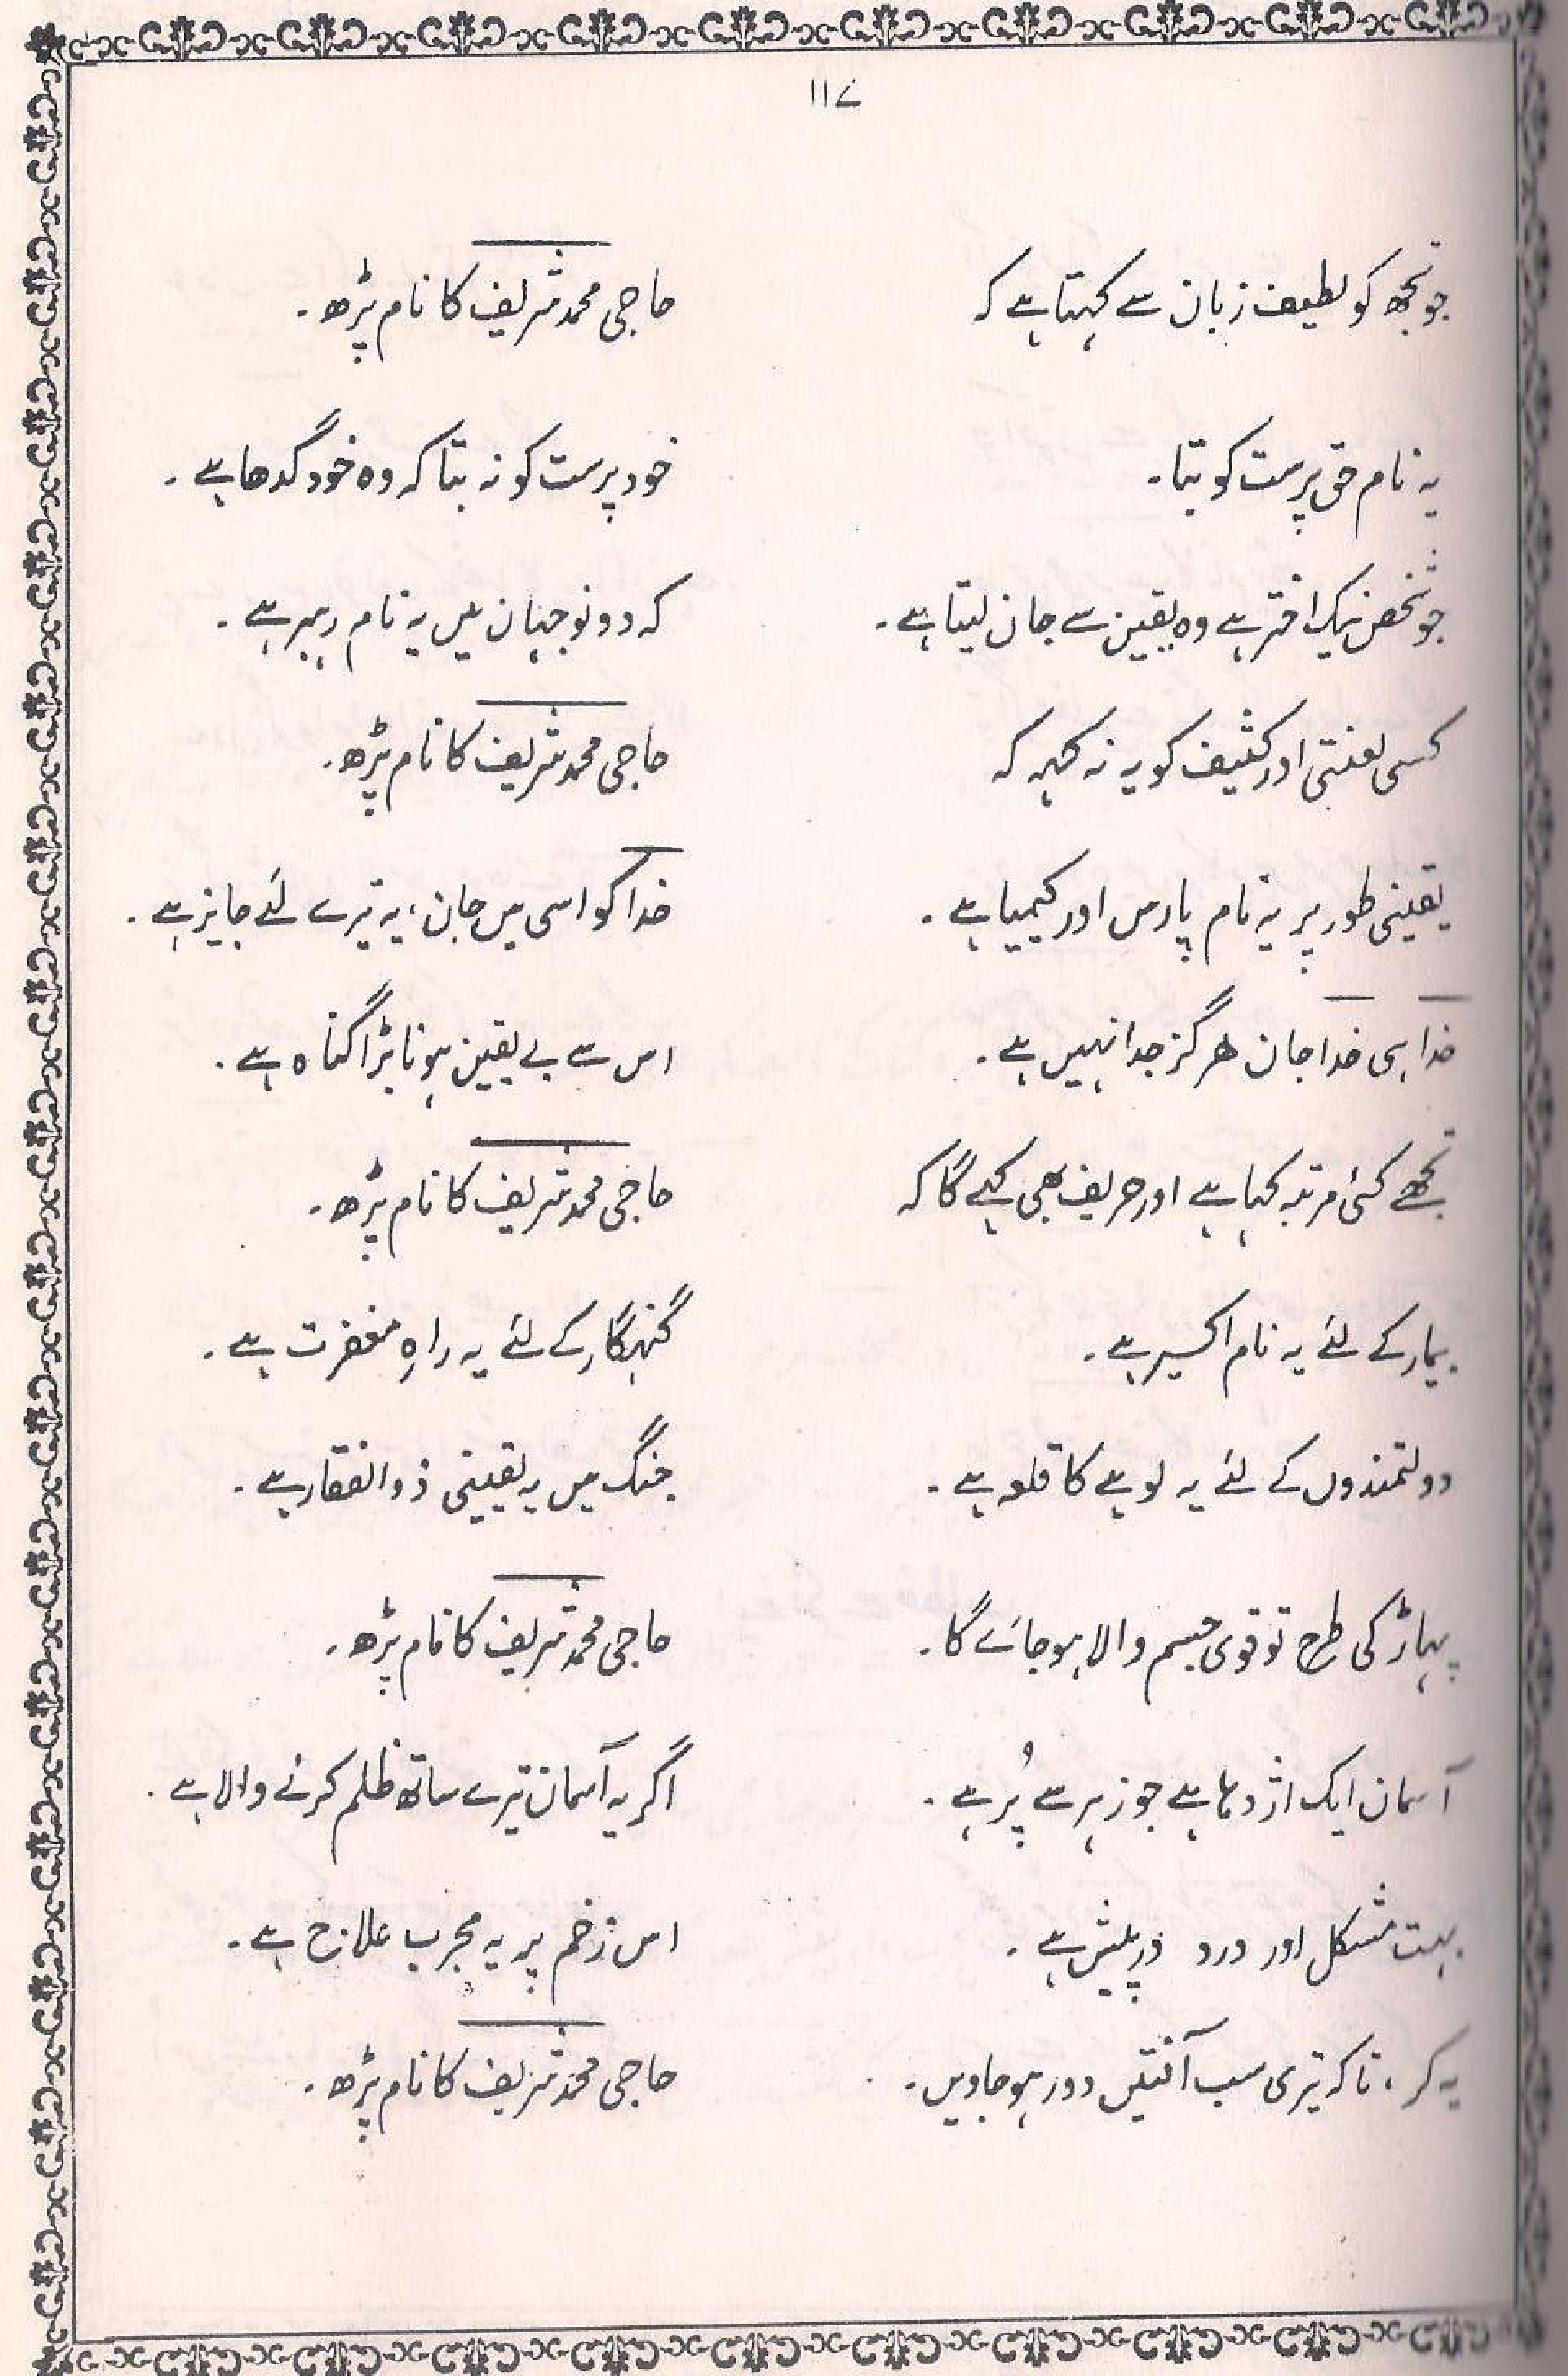 ۱۱۷
جو تجھ کو لطیف زبان سے کہتا ہے کہ حاجی محمد شریف کا نام پڑھ۔
یہ نام حق پرست کو بتا۔ خود پرست کو نہ بتا کہ وہ خود گدھا ہے۔
جو شخص نیک اختر ہے وہ یقین سے جان لیتا ہے۔ کہ دونو جہان میں یہ نام رہبر ہے۔
کسی لعنتی اور کثیف کو یہ نہ کہہ کہ حاجی محمد شریف کا نام پڑھ۔
یقینی طور پر یہ نام پارس اور کیمیا ہے۔ خدا کو اسی میں جان، یہ تیرے لئے جایز ہے۔
خدا ہی خدا جان ھرگز جدا نہیں ہے۔ اس سے بے یقین ہونا بڑا گناہ ہے۔
تجھے کئی مرتبہ کہا ہے اور حریف بھی کہے گا کہ حاجی محمد شریف کا نام پڑھ۔
بیمار کے لئے یہ نام اکسیر ہے۔ گنہگار کے لئے یہ راہِ مغفرت ہے۔
دولتمندوں کے لئے یہ لوہے کا قلعہ ہے۔ جنگ میں یہ یقینی ذوالفقار ہے۔
پہاڑ کی طرح تو قوی جسم والا ہو جائے گا۔ حاجی محمد شریف کا نام پڑھ۔
آسمان ایک اژدہا ہے جو زہر سے پُر ہے۔ اگر یہ آسمان تیرے ساتھ ظلم کرنے والا ہے۔
بہت مشکل اور درد درپیش ہے۔ اس زخم پر یہ مجرب علاج ہے۔
یہ کر، تاکہ تیری سب آفتیں دور ہو جاویں۔ حاجی محمد شریف کا نام پڑھ۔